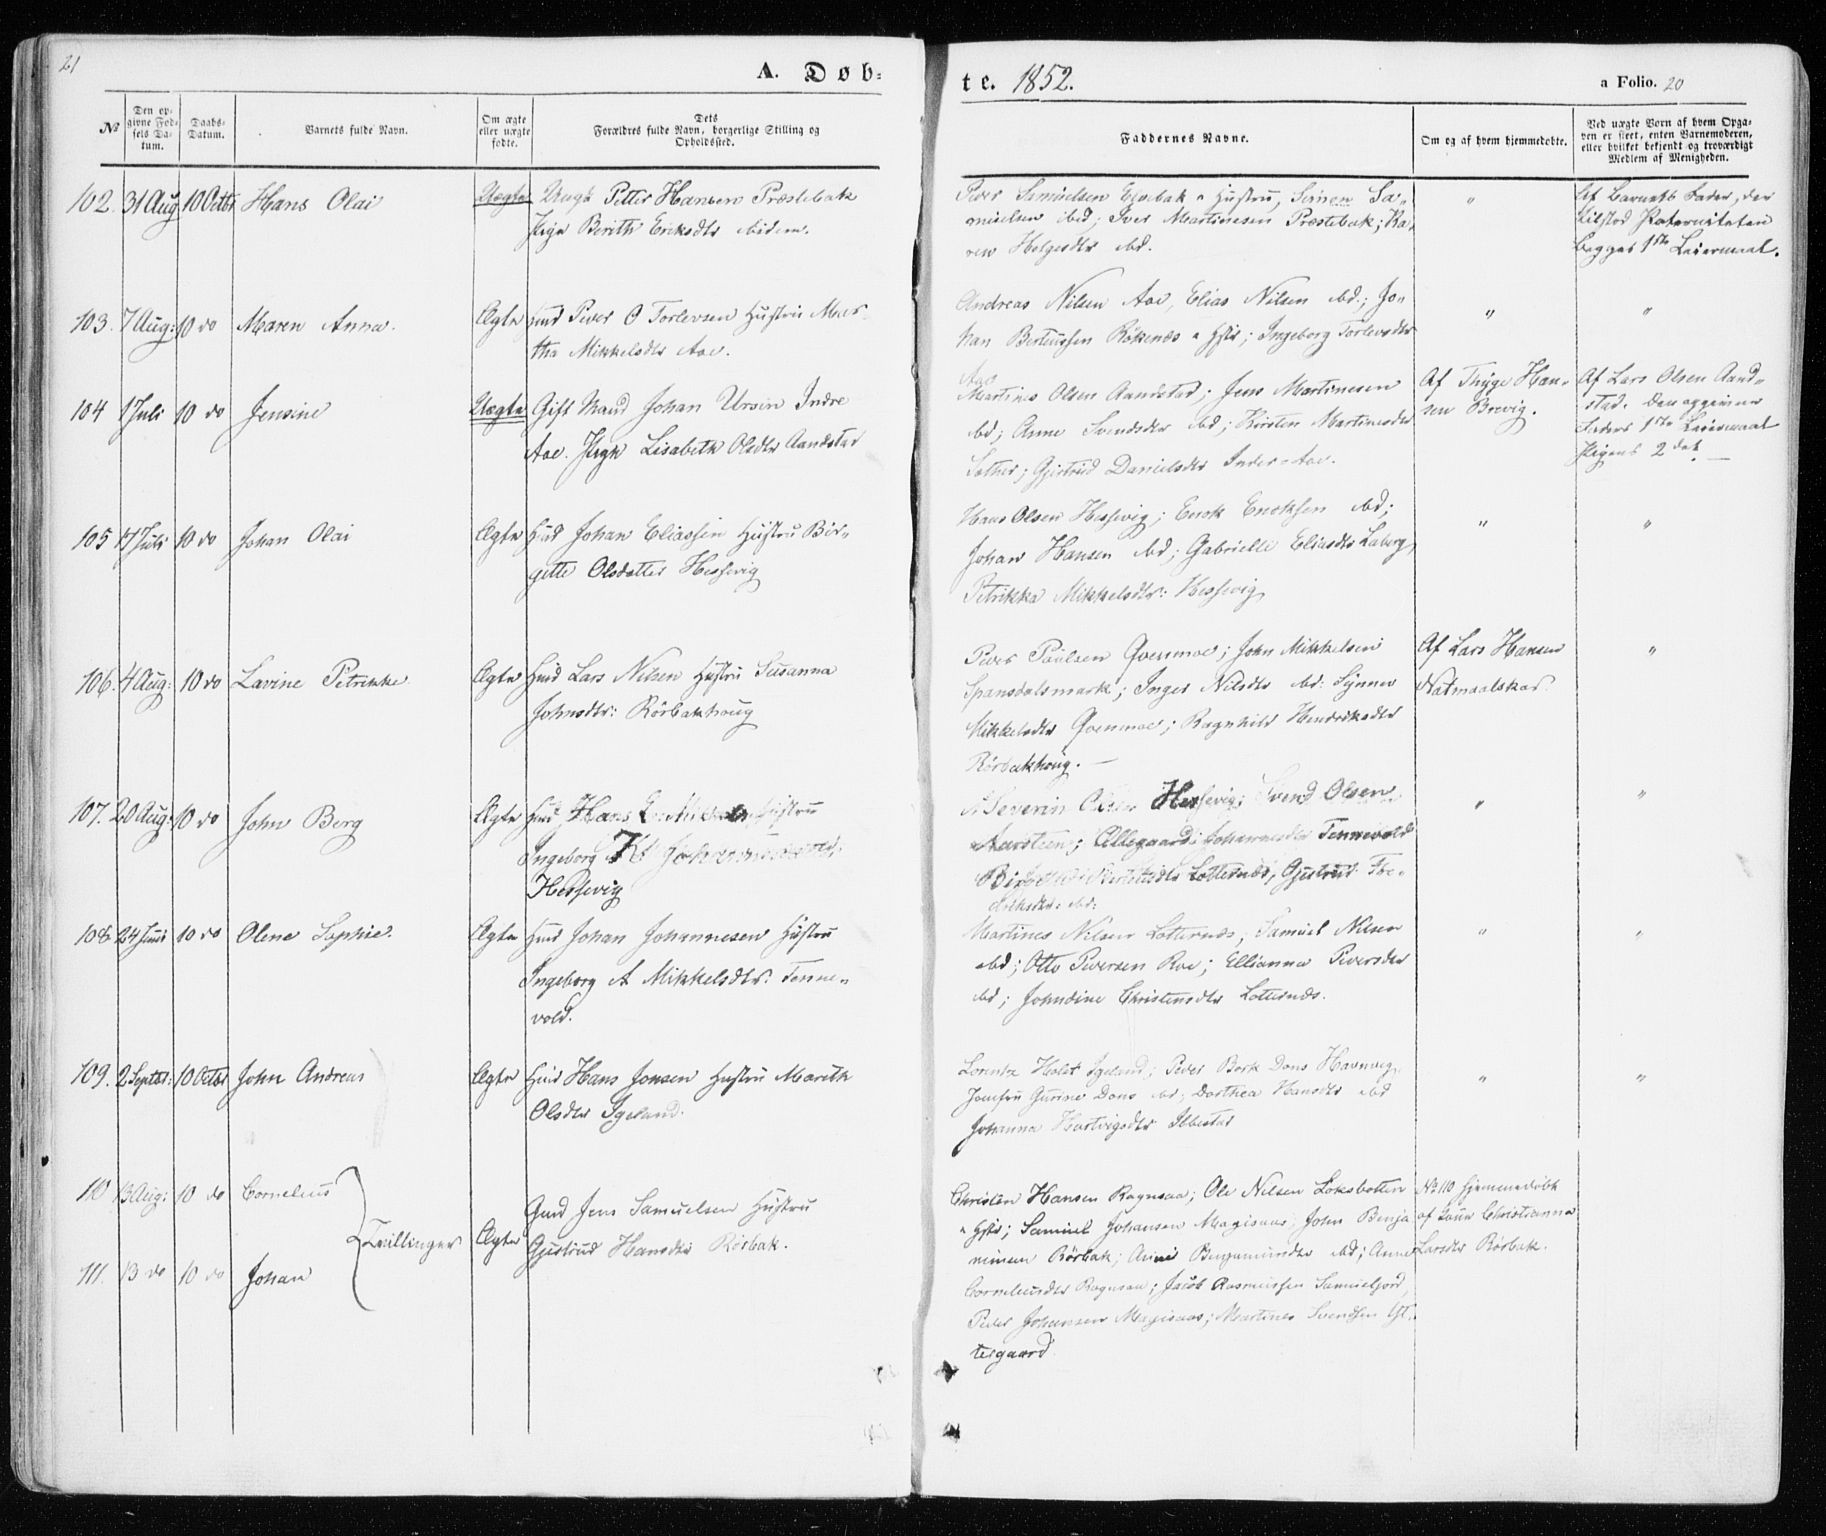 21
A. Døb=
te. 1852.
a Folio. 20
№
Den op-
givne Fød-
sels Da-
tum.
Daabs-
Datum.
Barnets fulde Navn.
Om ægte
eller uægte
fødte.
Dets
Forældres fulde Navn, borgerlige Stilling og
Opholdssted.
Faddernes Navne.
Om og af hvem hjemmedøbte.
Ved uægte Børn af hvem Opga-
ven er skeet, enten Barnemoderen,
eller hvilket bekjendt og troværdigt
Medlem af Menigheden.
102. 31 Aug 10 Octbr Hans Olai Uægte Ungk Petter Hansen Præstebak
Pige Berith Eriksdtr ibidem.
Peder Samuelsen Elvebak " Hustru, Simen Sa-
muelsen ibd; Iver Martinesen Præstebak; Ka-
ren Helgesdtr ibd.
"
Af Barnets Fader, der
tilstod Paterniteten
begges 1ste Leiermaal.
103. 7 Aug: 10 do Maren Anna. Ægte Hmd Peder O Torlevsen Hustru Mar-
tha Mikkelsdtr Aae.
Andreas Nilsen Aae, Elias Nilsen ibd; Jo-
han Berteussen Rökenes " Hstr; Ingeborg Torlevsdtr
Aae
" "
104 1 Juli 10 do Jensine Uægte Gift Mand Johan Ursin Indre
Aae. Pige Lisabeth Olsdtr Aandstad
Martines Olsen Aandstad; Jens Martinesen
ibd; Anne Svendsdtr ibd; Kirsten Martinesdtr
Sother; Gjertrud Danielsdtr Inder-Aae.
Af Thyge Han-
sen Brevig.
Af Lars Olsen Aand-
stad. Den opgivne
Faders 1ste Leiermaal
Pigens 2det. —
105 17 Juli 10 do Johan Olai Ægte Hmd Johan Eliassen Hustru Bir-
gitte Olsdatter Hessevig
Hans Olsen Hessevig; Enok Enoksen ibd;
Johan Hansen ibd; Gabrielle Eliasdtr Laberg,
Petrikka Mikkelsdtr: Hessevig
" "
106. 4 Aug: 10 do Lavine Petrikke Ægte Hmd Lars Nilsen Hustru Susanna
Johnsdtr: Rörbakhoug
Peder Paulsen Qvernmoe; John Mikkelsen
Spansdalsmark; Inger Nilsdtr ibd: Synnev
Mikkelsdtr Qvernmoe; Ragnhild Hendriksdtr
Rörbakhoug. —
Af Lars Hansen
Natmaalskar.
"
107. 20 Aug: 10 do John Berg Ægte Hmd Hans Hustru
Ingeborg K
Hessevig
Severin Hessevig; Svend Olsen
Aarsteen; Ellegaard Johannesdtr Tennevold
Lotternes, Gjertrud Fre-
driksdtr: ibd:
" "
108 24 Juni 10 do Olene Sophie. Ægte Hmd Johan Johannesen Hustru
Ingeborg A Mikkelsdtr: Tenne-
vold.
Martines Nilsen Lotternes; Samuel Nilsen
ibd; Otto Pedersen Roe; Ellianna Pedersdtr
ibd; Johndine Christensdtr Lotternes.
" "
109. 2 Septbr: 10 Octbr John Andreas Ægte Hmd Hans Jonsen Hustru Marith
Olsdtr Igeland.
Lorentz Holst Igeland; Peder Bork Dons Havnvig,
Jomfru Gurine Dons ibd; Dorthea Hansdtr ibd
Johanna Hartvigsdtr Ibbestad
" "
110 13 Aug: 10 do Cornelius
Tvillinger
111. 13 do 10 do Johan
Ægte Gmd Jens Samuelsen Hustru
Gjertrud Hansdtr Rörbak.
Christen Hansen Ragnsaa; Ole Nilsen Loksbotten
" Hstr; Samuel Johansen Magisaas; John Benja-
minsen Rörbak; Anne Benjaminsdtr ibd; Anne
Corneliusdtr Ragnsaa; Jacob Rasmussen Samuelfjord,
Peder Johansen Magisaas; Martines Svendsen Yt-
tergaard
No 110 hjemmedöbt
af Christianna
Larsdtr Rörbak.